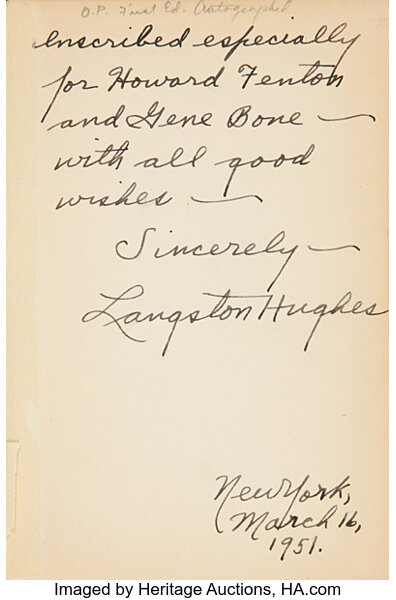 O.P. First Ed. Autographed
Inscribed especially
for Howard Fenton
and Gene Bone —
with all good
wishes —
Sincerely —
Langston Hughes
New York,
March 16,
1951.
Imaged by Heritage Auctions, HA.com